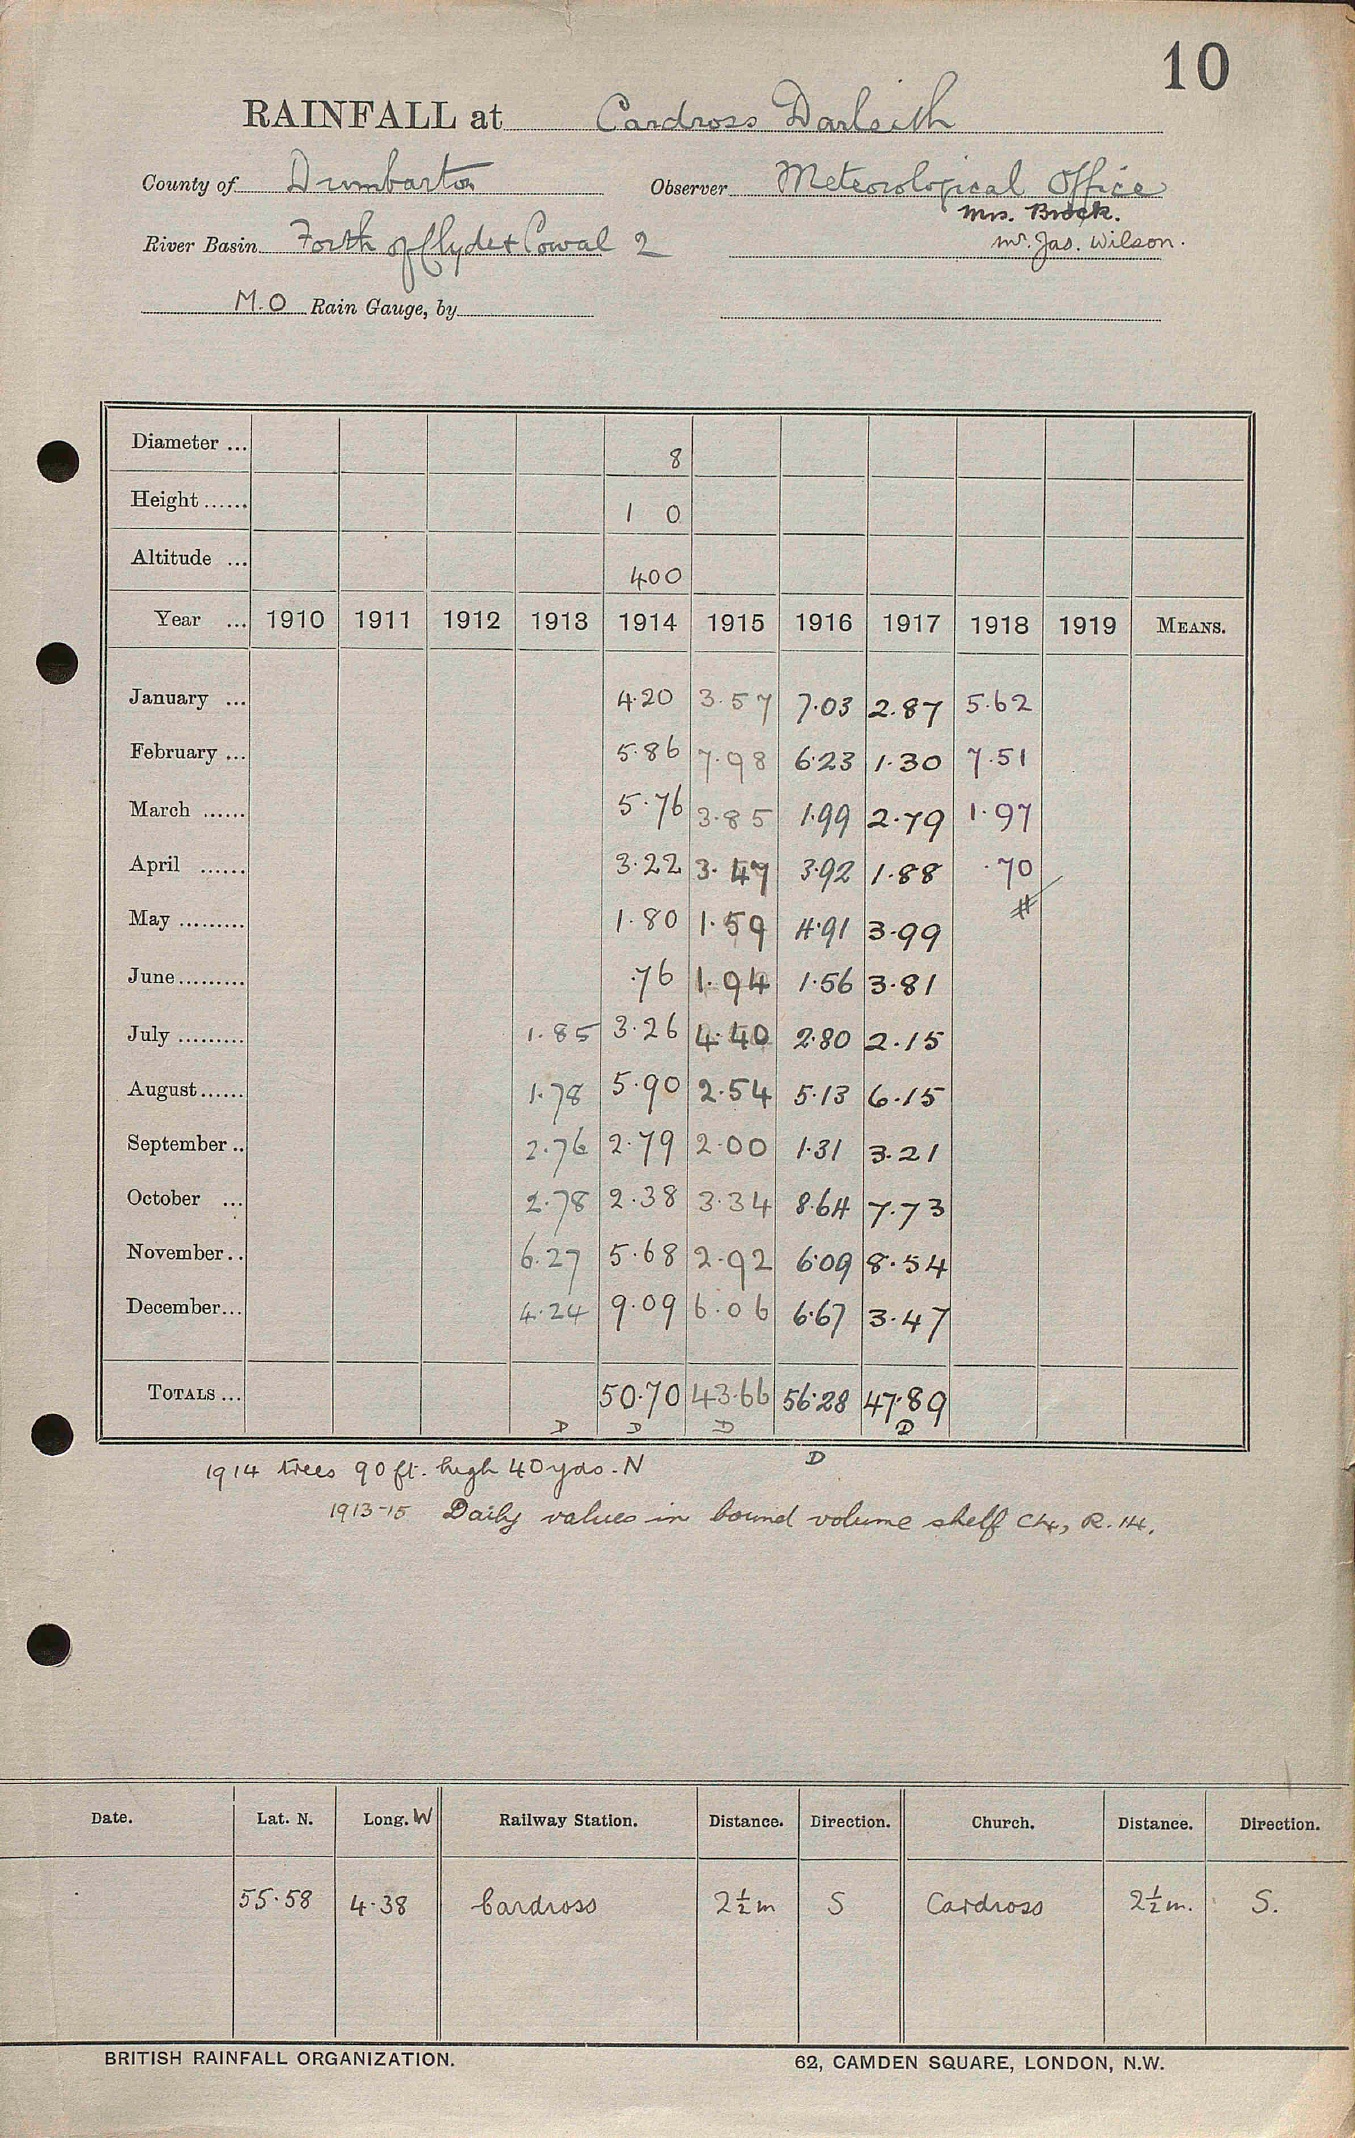 10
RAINFALL at Cardross Darleith
County of Dumbarton Observer Meteorological Office
Mrs. Brock.
River Basin Forth of Clyde & Cowal 2 Mr. Jas. Wilson.
M.O Rain Gauge, by
Diameter ... 8
Height ...... 1 0
Altitude ... 400
Year ... 1910 1911 1912 1913 1914 1915 1916 1917 1918 1919 MEANS.
January ... 4.20 3.57 7.03 2.87 5.62
February ... 5.86 7.98 6.23 1.30 7.51
March ...... 5.76 3.85 1.99 2.79 1.97
April ...... 3.22 3.47 3.92 1.88 .70
May ......... 1.80 1.59 4.91 3.99 #
June ......... .76 1.94 1.56 3.81
July ......... 1.85 3.26 4.40 2.80 2.15
August ...... 1.78 5.90 2.54 5.13 6.15
September .. 2.76 2.79 2.00 1.31 3.21
October ... 2.78 2.38 3.34 8.64 7.73
November .. 6.27 5.68 2.92 6.09 8.54
December ... 4.24 9.09 6.06 6.67 3.47
TOTALS ... 50.70 43.66 56.28 47.89
D D D D D
1914 trees 90 ft. high 40 yds. N
1913-15 Daily values in bound volume shelf C4, R.14.
Date. Lat. N. Long. W Railway Station. Distance. Direction. Church. Distance. Direction.
55.58 4.38 Cardross 2½ m S Cardross 2½ m. S.
BRITISH RAINFALL ORGANIZATION. 62, CAMDEN SQUARE, LONDON, N.W.